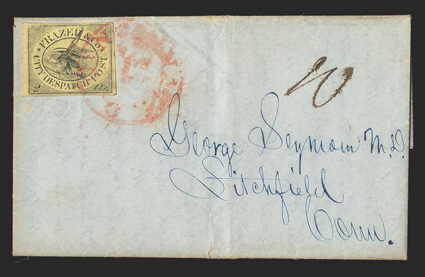 FRAZER & Co.
CITY DESPATCH POST.
2 cts.
10
George Seymour M.D.
Litchfield
Conn.